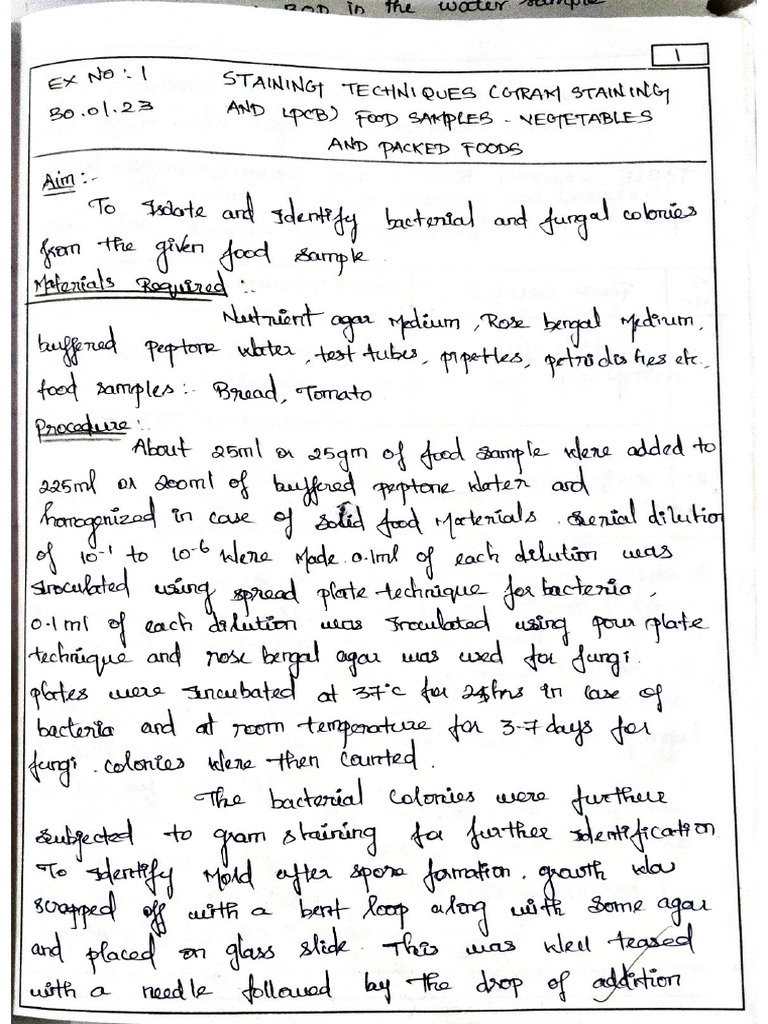 BOD in the water sample
1
EX NO: 1 STAINING TECHNIQUES (GRAM STAINING
30.01.23 AND LPCB) FOOD SAMPLES - VEGETABLES
AND PACKED FOODS
Aim:-
To Isolate and Identify bacterial and fungal colonies
from the given food sample.
Materials Required:-
Nutrient agar Medium, Rose bengal Medium,
buffered peptone water, test tubes, pipettes, petridishes etc.,
food samples:- Bread, Tomato
Procedure:-
About 25ml or 25gm of food sample were added to
225ml or 200ml of buffered peptone water and
homogenized in case of solid food Materials. Serial dilution
of 10-1 to 10-6 were Made. 0.1ml of each dilution was
Inoculated using spread plate technique for bacteria,
0.1ml of each dilution was Inoculated using pour plate
technique and rose bengal agar was used for fungi.
plates were Incubated at 37°c for 24hrs in case of
bacteria and at room temperature for 3-7 days for
fungi. colonies were then counted.
The bacterial colonies were further
subjected to gram staining for further identification
To Identify Mold after spore formation. growth was
scrapped off with a bent loop along with some agar
and placed on glass slide. This was well teased
with a needle followed by the drop of addition